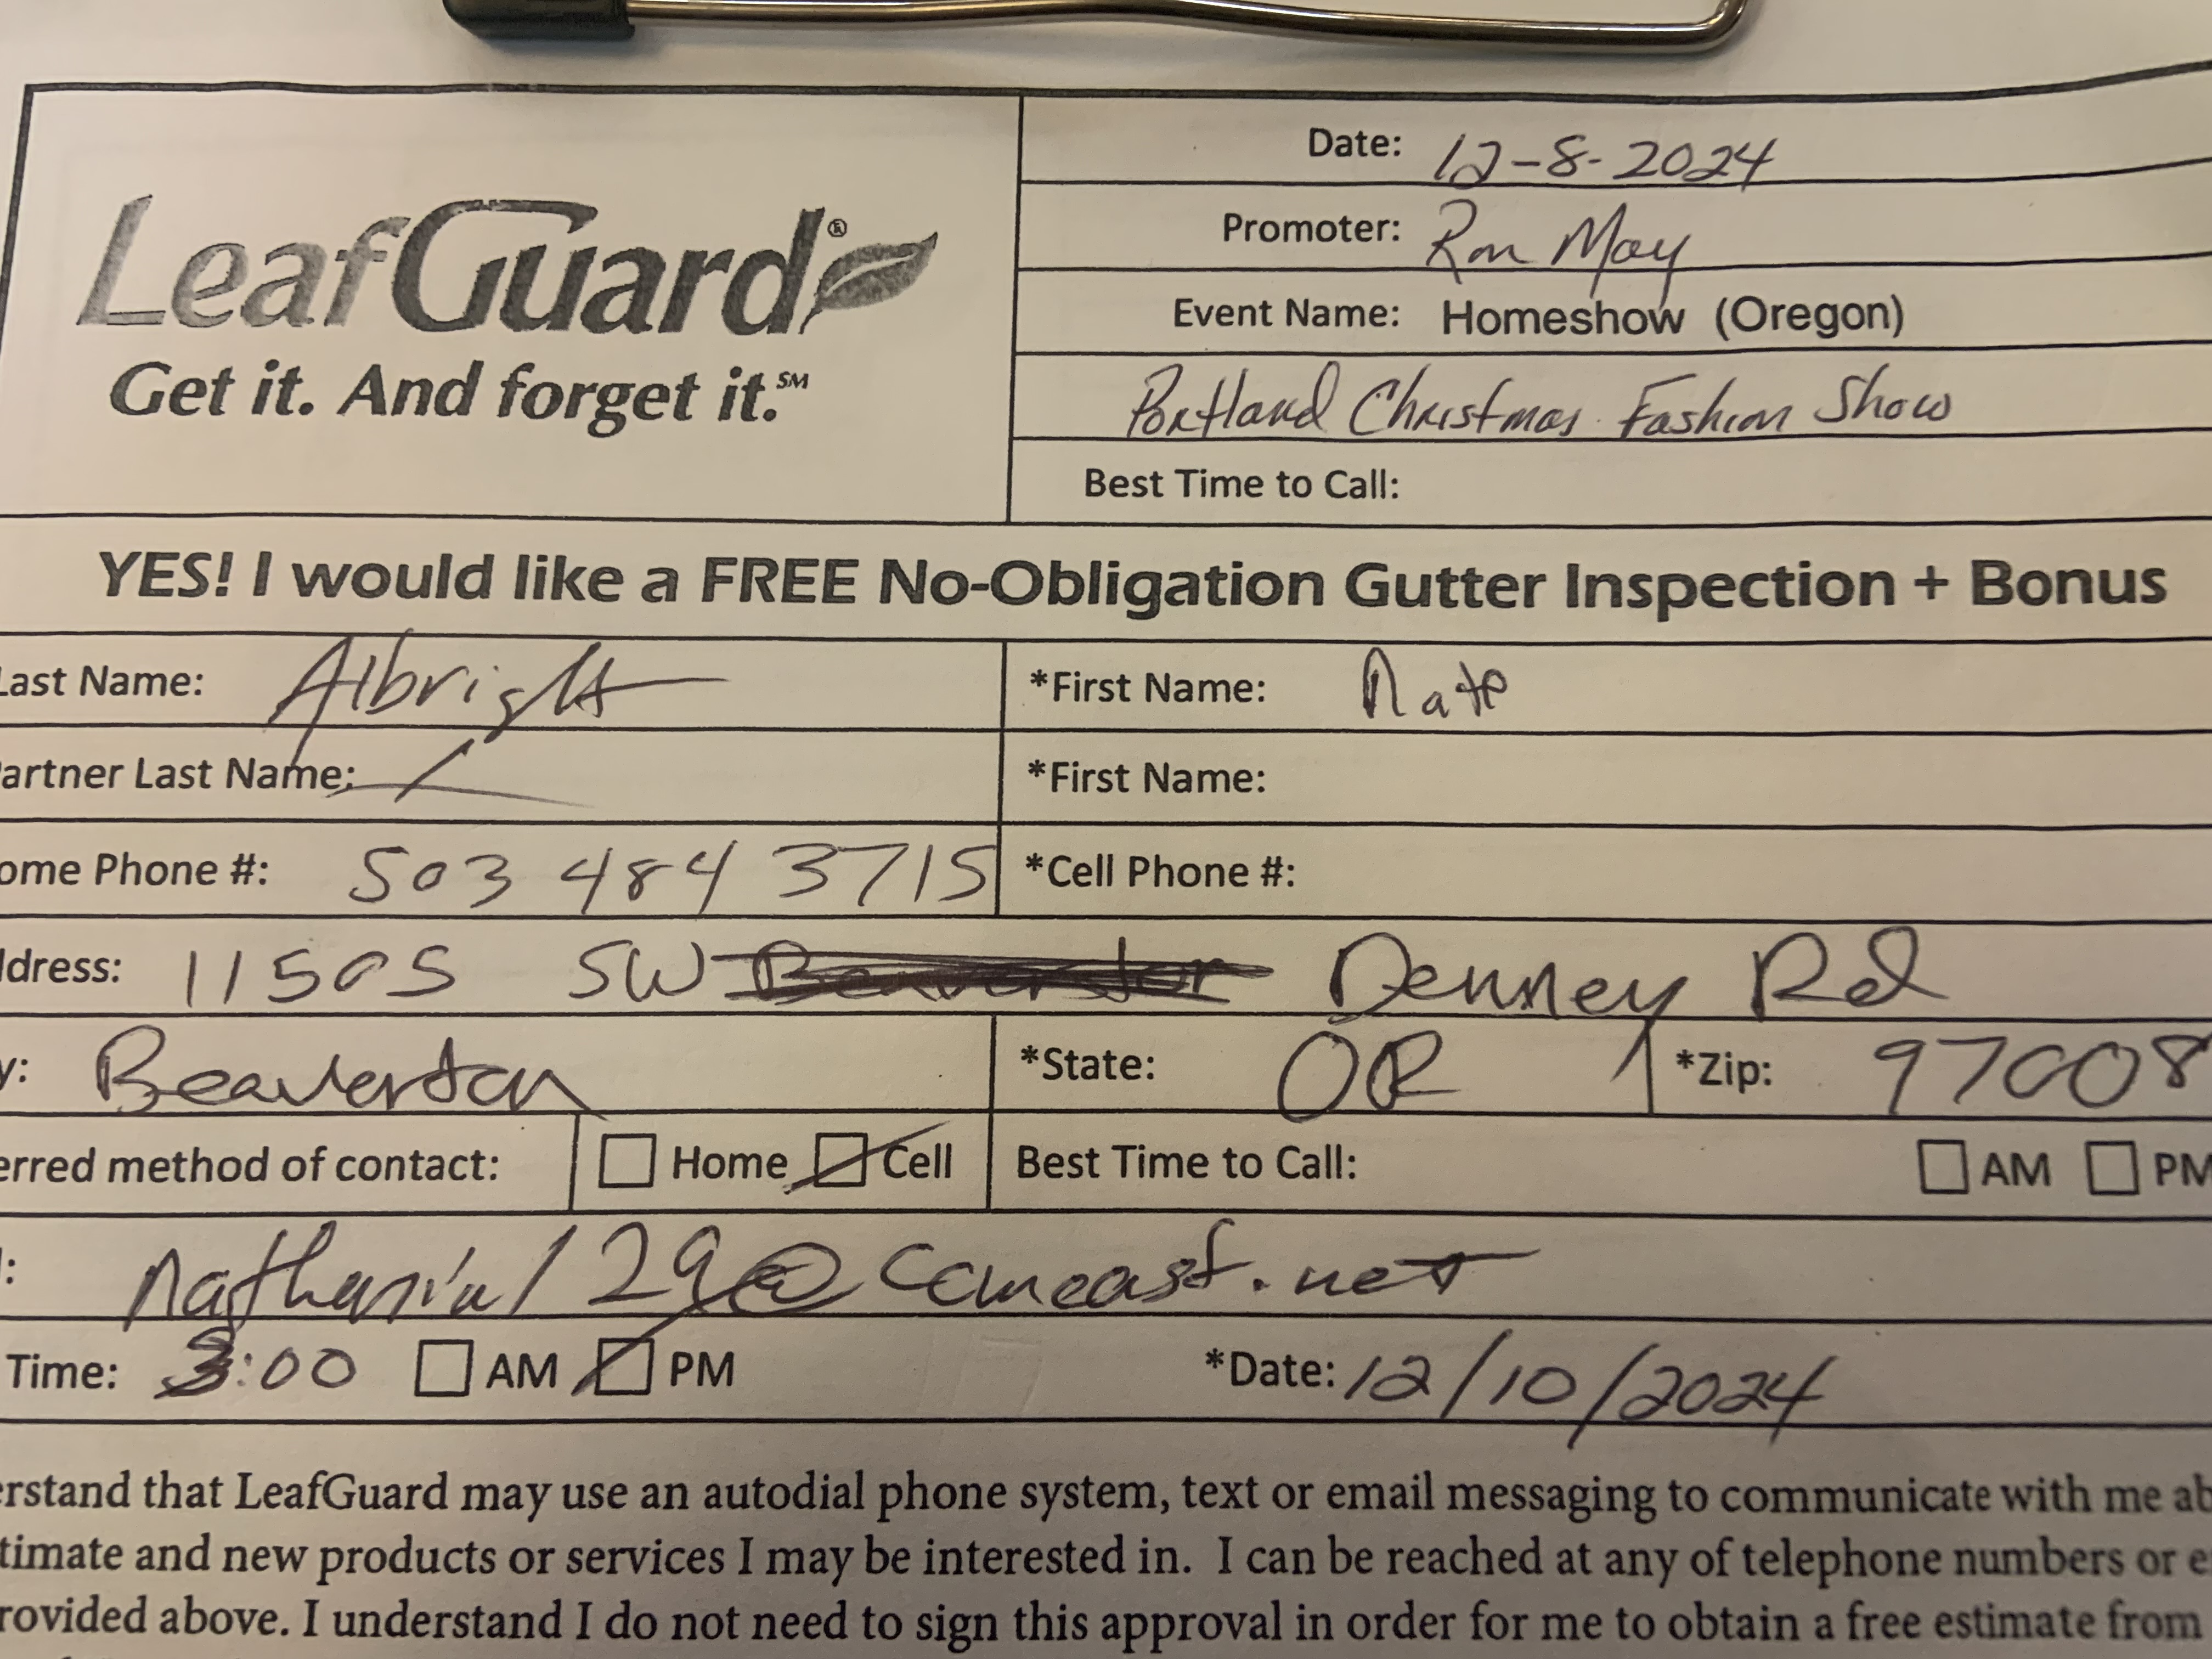 LeafGuard®
Get it. And forget it.℠
Date: 12-8-2024
Promoter: Ron May
Event Name: Homeshow (Oregon)
Portland Christmas Fashion Show
Best Time to Call:
YES! I would like a FREE No-Obligation Gutter Inspection + Bonus
Last Name: Albright *First Name: Nate
artner Last Name: *First Name:
ome Phone #: 503 484 3715 *Cell Phone #:
ddress: 11505 SW Denney Rd
y: Beaverton *State: OR *Zip: 97008
erred method of contact: Home Cell Best Time to Call: AM PM
l: @comcast.net
Time: :00 AM PM *Date: 12/10/2024
erstand that LeafGuard may use an autodial phone system, text or email messaging to communicate with me ab
timate and new products or services I may be interested in. I can be reached at any of telephone numbers or e
rovided above. I understand I do not need to sign this approval in order for me to obtain a free estimate from